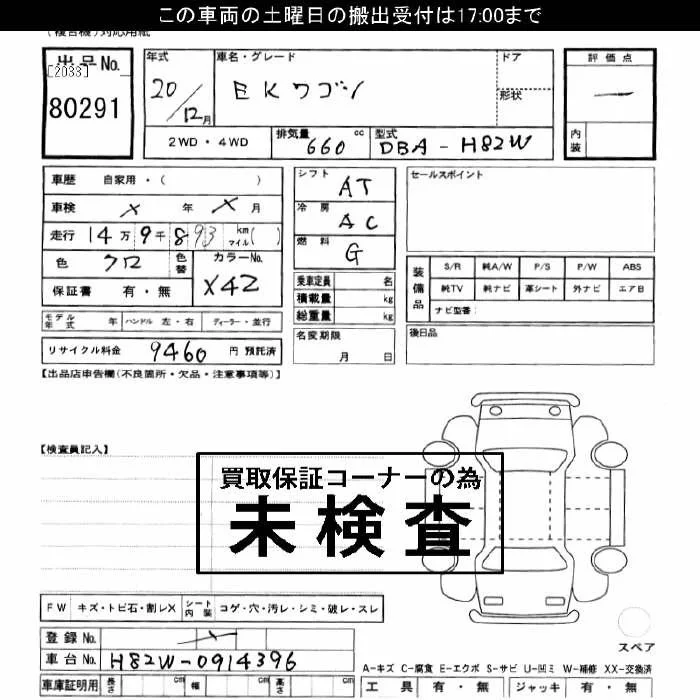 この車両の土曜日の搬出受付は17:00まで
(複合機)対応用紙
出品No.
[2033]
80291
年式
20/12月
車名・グレード
EKワゴン
ドア
形状
評価点
—
内装
2WD・4WD
排気量 660 cc
型式 DBA-H82W
車歴 自家用・( )
車検 × 年 × 月
走行 14万9千893 km マイル( )
色 クロ
色替
カラーNo. X42
保証書 有・無
モデル年式 年
ハンドル 左・右
ディーラー・並行
リサイクル料金 9460 円 預託済
シフト AT
冷房 AC
燃料 G
乗車定員 名
積載量 kg
総重量 kg
名変期限
月 日
セールスポイント
装備品
S/R 純A/W P/S P/W ABS
純TV 純ナビ 革シート 外ナビ エアB
ナビ型番
後日品
【出品店申告欄(不良箇所・欠品・注意事項等)】
【検査員記入】
買取保証コーナーの為
未検査
FW キズ・トビ石・割レX
シート内装 コゲ・穴・汚レ・シミ・破レ・スレ
登録No. ×
車台No. H82W-0914396
車庫証明用 長さ cm 幅 cm 高さ cm
スペア
A-キズ C-腐食 E-エクボ S-サビ U-凹ミ W-補修 XX-交換済
工具 有・無 ジャッキ 有・無